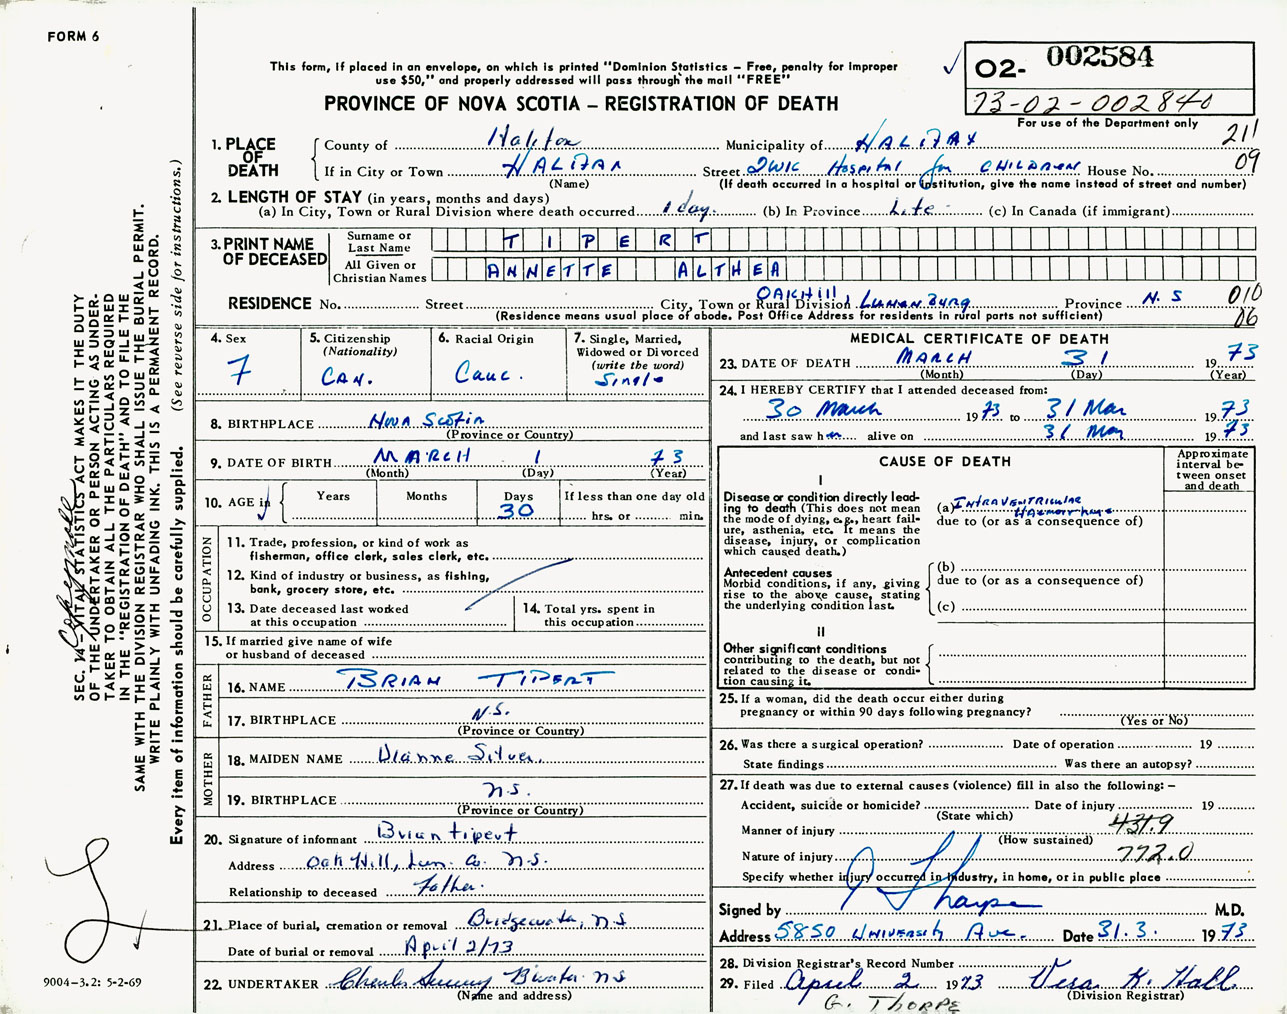 FORM 6
This form, if placed in an envelope, on which is printed "Dominion Statistics – Free, penalty for improper
use $50," and properly addressed will pass through the mail "FREE"
PROVINCE OF NOVA SCOTIA – REGISTRATION OF DEATH
O2- 002584
73-02-002840
For use of the Department only
211
09
1. PLACE OF DEATH
County of Halifax Municipality of HALIFAX
If in City or Town HALIFAX Street IWK Hospital for CHILDREN House No.
(Name) (If death occurred in a hospital or institution, give the name instead of street and number)
2. LENGTH OF STAY (in years, months and days)
(a) In City, Town or Rural Division where death occurred 1 day. (b) In Province Life (c) In Canada (if immigrant)
3. PRINT NAME OF DECEASED
Surname or Last Name TIPERT
All Given or Christian Names ANNETTE ALTHEA
RESIDENCE No. Street City, Town or Rural Division OAKHill, Lunenburg Province N.S
(Residence means usual place of abode. Post Office Address for residents in rural parts not sufficient)
010
06
4. Sex 7
5. Citizenship (Nationality) CAN.
6. Racial Origin Cauc.
7. Single, Married, Widowed or Divorced (write the word) Single
8. BIRTHPLACE NOVA SCOTIA
(Province or Country)
9. DATE OF BIRTH MARCH 1 73
(Month) (Day) (Year)
10. AGE in Years Months Days 30 If less than one day old hrs. or min.
OCCUPATION
11. Trade, profession, or kind of work as
fisherman, office clerk, sales clerk, etc.
12. Kind of industry or business, as fishing,
bank, grocery store, etc.
13. Date deceased last worked
at this occupation
14. Total yrs. spent in
this occupation
15. If married give name of wife
or husband of deceased
FATHER
16. NAME BRIAN TIPERT
17. BIRTHPLACE N.S.
(Province or Country)
MOTHER
18. MAIDEN NAME Dianne Silver.
19. BIRTHPLACE N.S.
(Province or Country)
20. Signature of informant Brian tipert
Address Oak Hill, Lun. Co. N.S.
Relationship to deceased Father.
21. Place of burial, cremation or removal Bridgewater, N.S
Date of burial or removal April 2/73
22. UNDERTAKER Charles N S
(Name and address)
MEDICAL CERTIFICATE OF DEATH
23. DATE OF DEATH MARCH 31 1973
(Month) (Day) (Year)
24. I HEREBY CERTIFY that I attended deceased from:
30 March 1973 to 31 Mar 1973
and last saw her alive on 31 Mar 1973
CAUSE OF DEATH
Approximate interval between onset and death
I
Disease or condition directly lead-
ing to death (This does not mean
the mode of dying, e.g., heart fail-
ure, asthenia, etc. It means the
disease, injury, or complication
which caused death.)
(a) INTRAVENTRICULAR
HAEMorrhage
due to (or as a consequence of)
Antecedent causes
Morbid conditions, if any, giving
rise to the above cause, stating
the underlying condition last.
(b)
due to (or as a consequence of)
(c)
II
Other significant conditions
contributing to the death, but not
related to the disease or condi-
tion causing it.
25. If a woman, did the death occur either during
pregnancy or within 90 days following pregnancy?
(Yes or No)
26. Was there a surgical operation? Date of operation 19
State findings Was there an autopsy?
27. If death was due to external causes (violence) fill in also the following: –
Accident, suicide or homicide? Date of injury 19
(State which)
Manner of injury 431.9
(How sustained)
Nature of injury 772.0
Specify whether injury occurred in industry, in home, or in public place
Signed by Tharpe M.D.
Address 5850 UNIVERSITY Ave. Date 31.3. 1973
28. Division Registrar's Record Number
29. Filed April 2 1973 Vera K. Hall
(Division Registrar)
G. THORPE
SEC. 14 – VITAL STATISTICS ACT MAKES IT THE DUTY
OF THE UNDERTAKER OR PERSON ACTING AS UNDER-
TAKER TO OBTAIN ALL THE PARTICULARS REQUIRED
IN THE "REGISTRATION OF DEATH" AND TO FILE THE
SAME WITH THE DIVISION REGISTRAR WHO SHALL ISSUE THE BURIAL PERMIT.
WRITE PLAINLY WITH UNFADING INK. THIS IS A PERMANENT RECORD.
Every item of information should be carefully supplied. (See reverse side for instructions.)
9004-3.2: 5-2-69